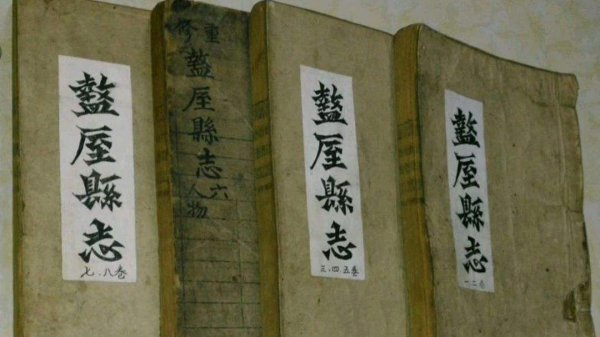 盩厔縣志
一二卷
盩厔縣志
三.四.五卷
重修
盩厔縣志六
人物
盩厔縣志
七.八卷